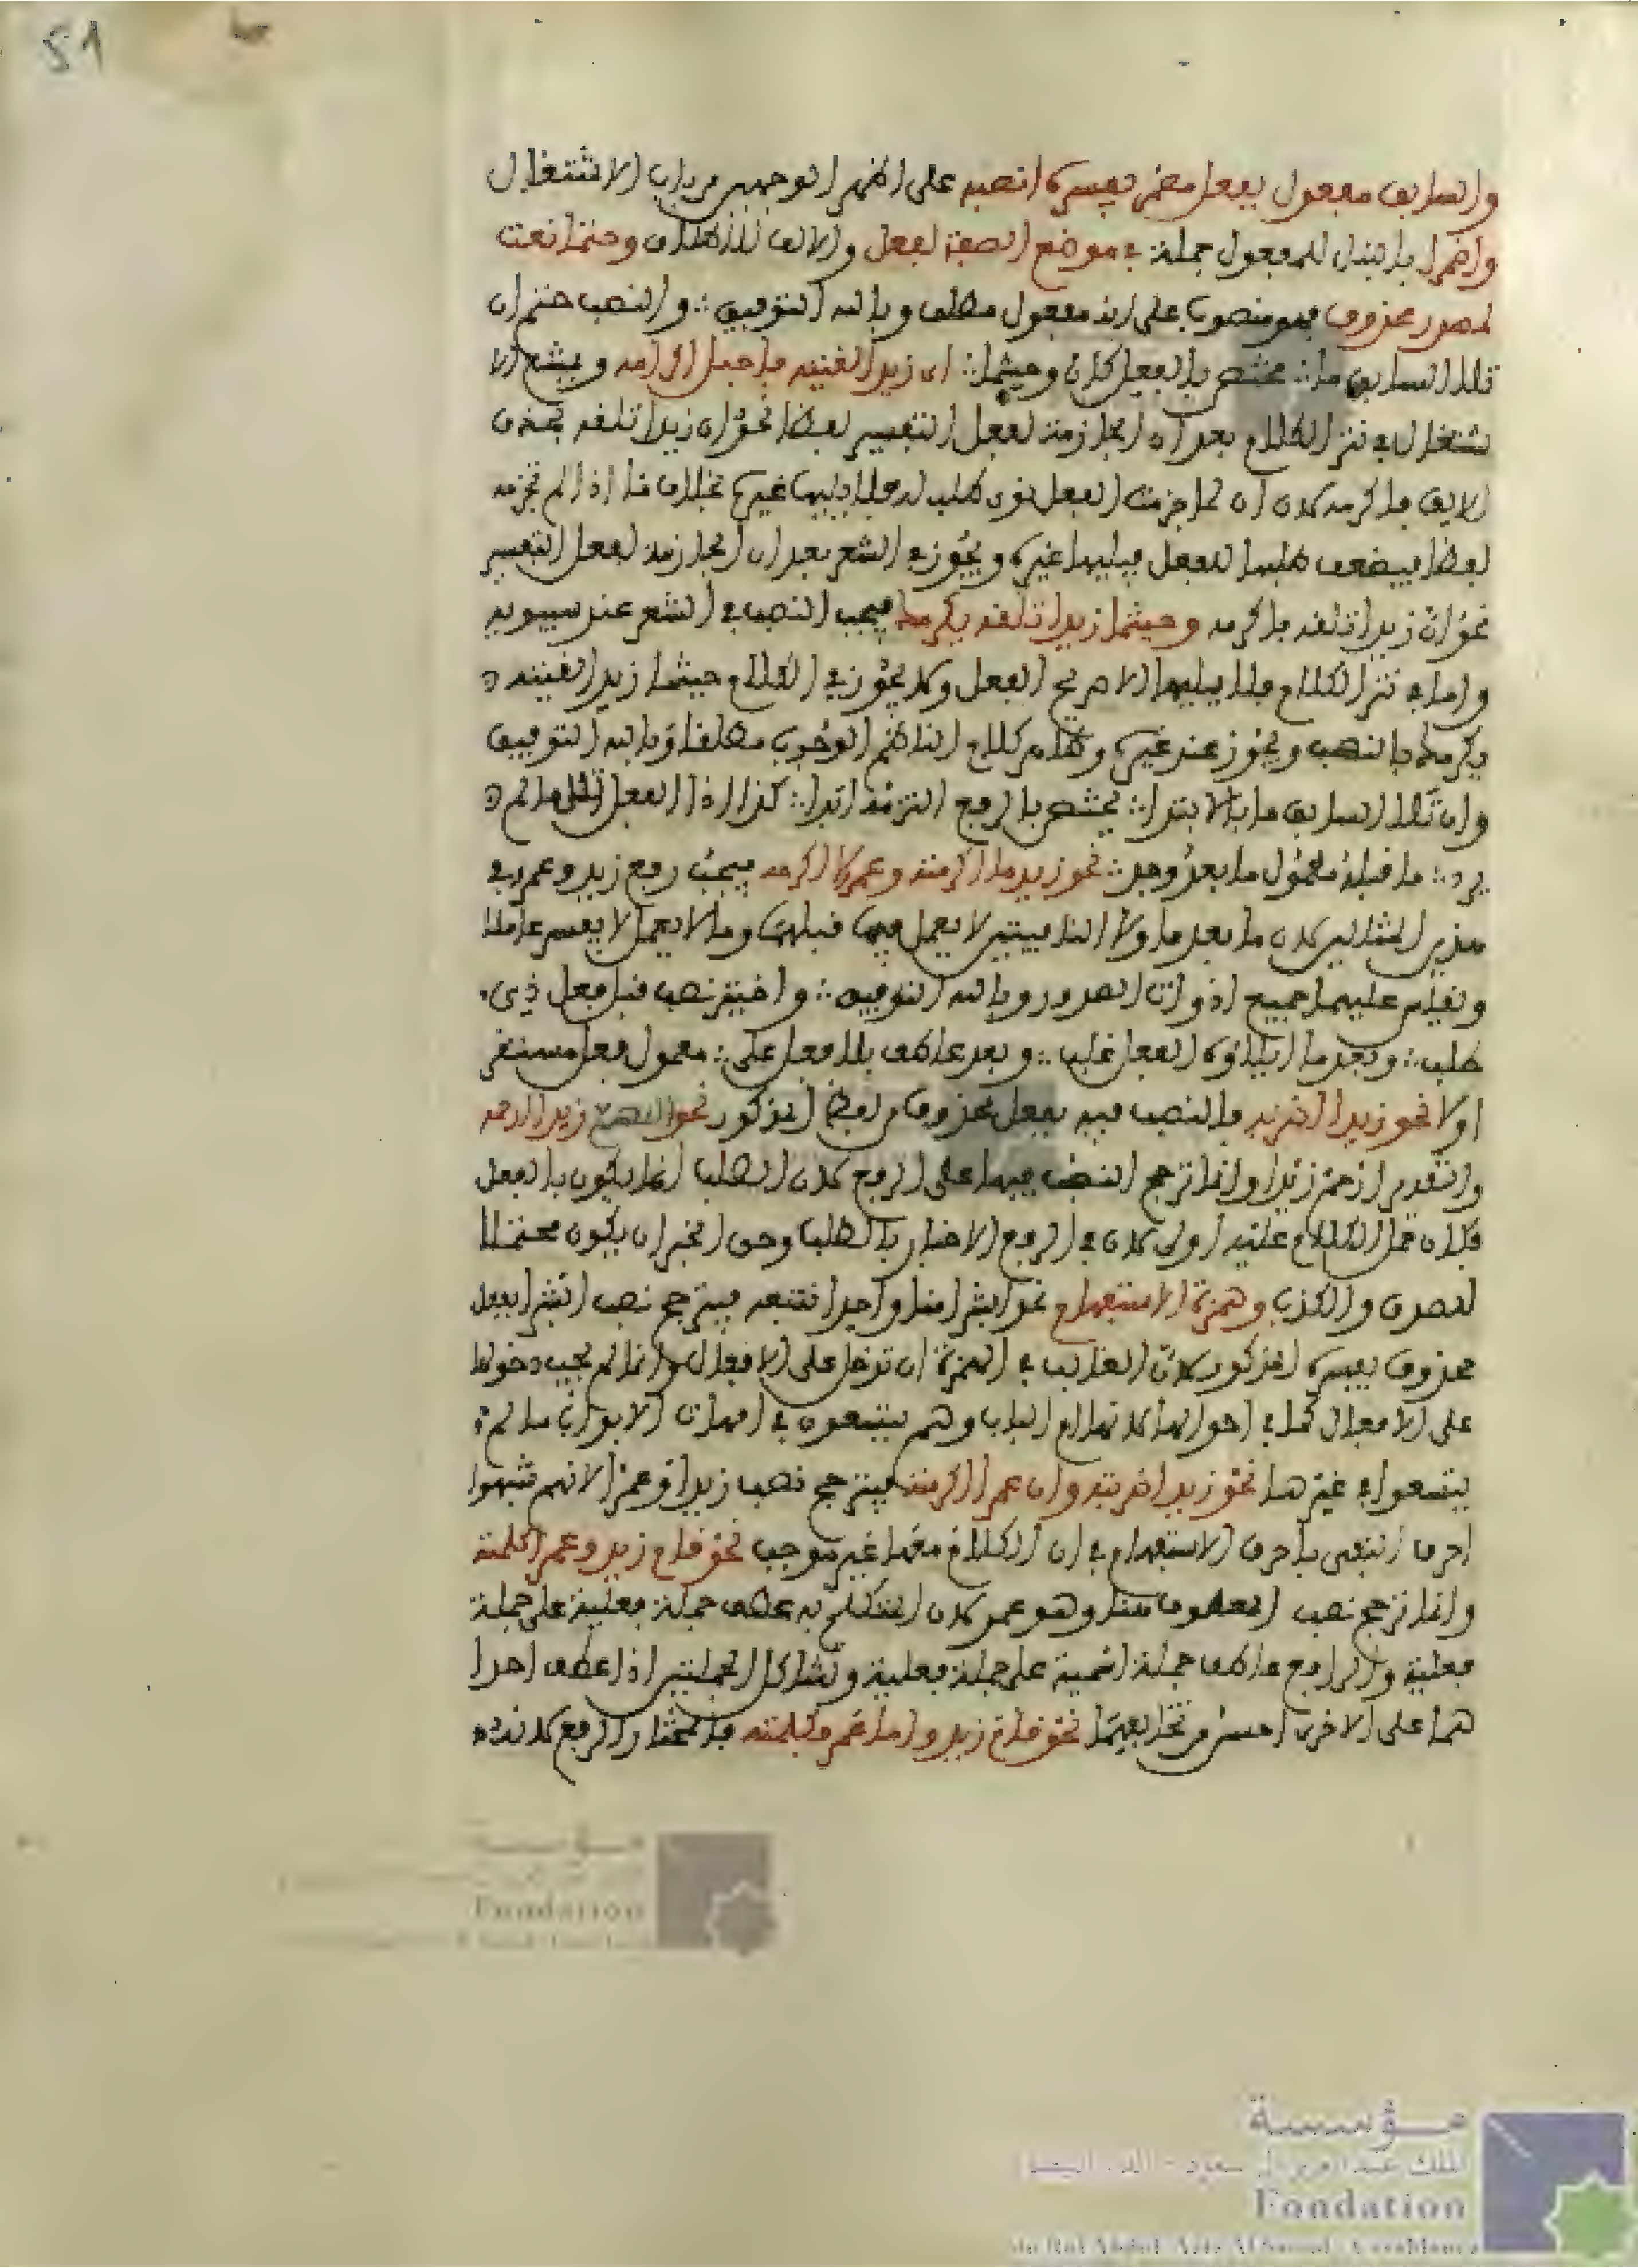 51
والسابق مفعول بفعل مضمر يفسره انصبه على اظهر الوجهين من باب الاشتغال
واضمرا بالبنا للمفعول جملة في موضع الصفة لفعل والالف للاطلاق وحتما نعت
لمصدر محذوف فهو منصوب على انه مفعول مطلق وبالله التوفيق ∴ والنصب حتم ان
تلا السابق ما ∴ يختص بالفعل كان وحيثما ∴ ان زيدا لقيته
نحو ان زيدا تلقه بحذف
الالف فاكرمه لان ان لما جزمت الفعل قوى طلبها له فلا يليها غيره بخلاف ما اذا لم تجزمه
لفظا فيضعف طلبها للفعل فيليها غيره ويجوز في الشعر بعد ان الجازمة لفعل التفسير
نحو ان زيدا تلقه فاكرمه وحيثما زيدا تلقه يكرمك فيجب النصب في الشعر عند سيبويه
واما في نثر الكلام فلا يليهما الا صريح الفعل ولا يجوز في الكلام حيثما زيدا لقيته
يكرمك بالنصب ويجوز عند غيره وظاهر كلام الناظم الوجوب مطلقا وبالله التوفيق
وان تلا السابق ما بالابتدا ∴ يختص بالرفع التزمه ابدا ∴ كذا اذا الفعل تلا ما لم
يرد ∴ ما قبله معمول ما بعد وجد ∴ نحو زيد ما اكرمته وعمرو لا اكرمه فيجب رفع زيد وعمرو في
هذين المثالين لان ما بعد ما ولا النافيتين لا يعمل فيما قبلهما وما لا يعمل لا يفسر عاملا
ونقيس عليهما جميع اذوات الصدور وبالله التوفيق ∴ واختير نصب قبل فعل ذي
طلب ∴ وبعد ما ايلاؤه الفعل غلب ∴ وبعد عاطف بلا فصل على ∴ معمول فعل مستقر
اولا نحو زيدا اضربه فالنصب فيه بفعل محذوف من لفظ المذكور نحو اللهم زيدا ارحمه
والتقدير ارحم زيدا وانما ترجح النصب فيهما على الرفع لان الطلب انما يكون بالفعل
فكان حمل الكلام عليه اولى لان في الرفع الاخبار بالطلب وحق الخبر ان يكون محتملا
للصدق والكذب وهمزة الاستفهام نحو ابشرا منا واحدا نتبعه فيترجح نصب ابشرا بفعل
محذوف يفسره المذكور لان الغالب في الهمزة ان تدخل على الافعال وانما لم يجب دخولها
على الافعال كما في اخواتها لانها ام الباب وهم يتسعون في امهات الابواب ما لم
يتسعوا في غيرها نحو زيدا ضربته وان عمرا اكرمته فيترجح نصب زيدا وعمرا لانهم شبهوا
احرف النفي باحرف الاستفهام في ان الكلام معها غير موجب نحو قام زيد وعمرا كلمته
وانما ترجح نصب المعطوف هنا وهو عمر لان المتكلم به عطف جملة فعلية على جملة
فعلية والرافع عاطف جملة اسمية على جملة فعلية وتشاكل الجملتين اذا عطف احدا
هما على الاخرى احسن من تخالفهما نحو قام زيد واما عمرو فكلمته فالمختار الرفع لانه
مؤسسة
Fondation
مؤسسة
الملك عبد العزيز آل سعود - الدار البيضاء
Fondation
du Roi Abdul-Aziz Al Saoud - Casablanca